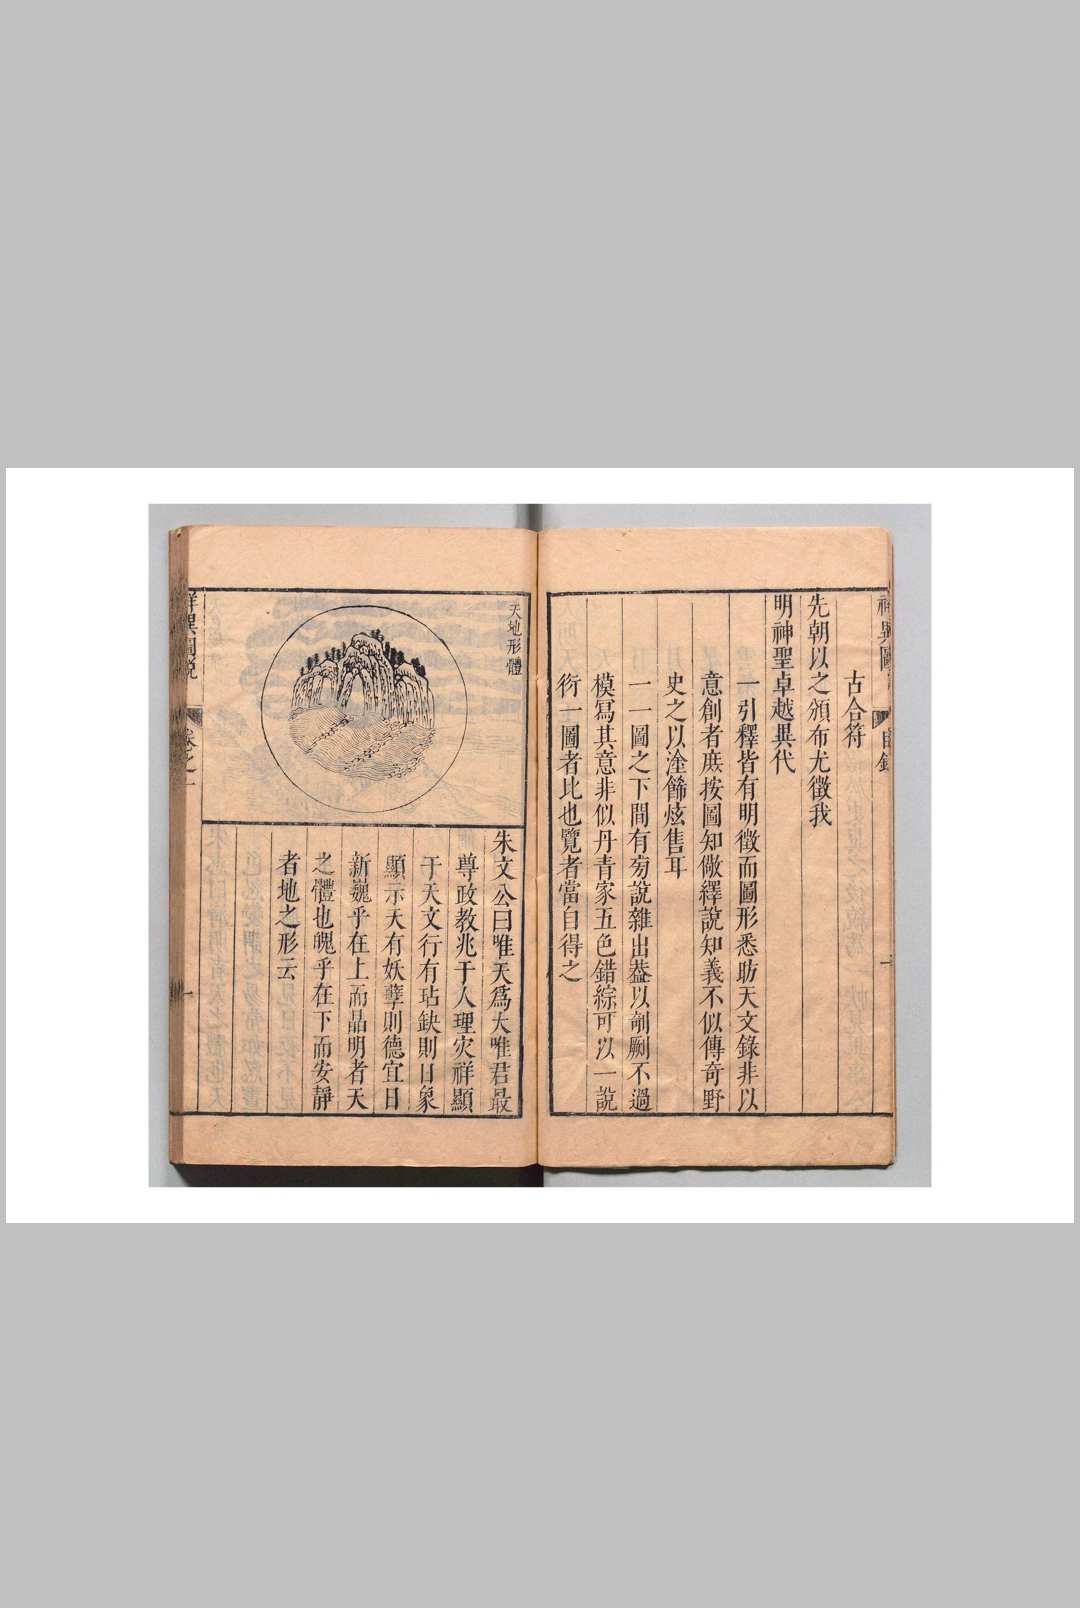 古合符
先朝以之頒布尤徵我
明神聖卓越異代
一引釋皆有明徵而圖形悉昉天文錄非以
意創者庶按圖知儆繹說知義不似傳奇野
史之以塗飾炫售耳
一一圖之下間有旁說雜出葢以剞劂不過
模寫其意非似丹青家五色錯綜可以一說
衍一圖者比也覽者當自得之
天地形體
朱文公曰唯天爲大唯君最
尊政教兆于人理灾祥顯
于天文行有玷缺則日象
顯示天有妖孽則德宜日
新巍乎在上而晶明者天
之體也魄乎在下而安靜
者地之形云
祥異圖說
卷之一
一